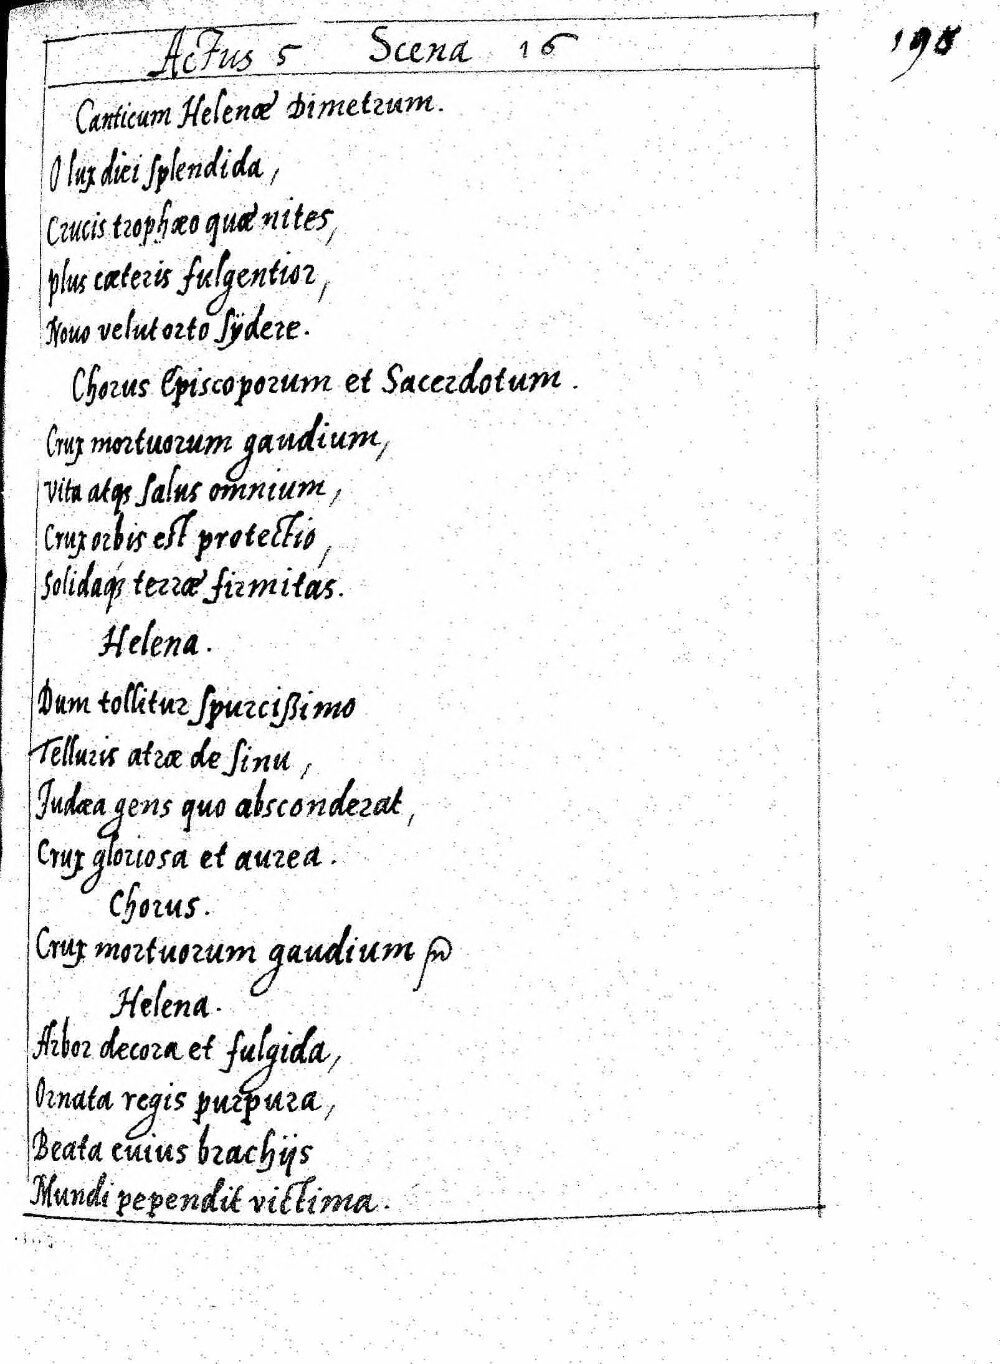 Actus 5 Scena 16
Canticum Helenæ Dimetrum.
O lux diei splendida,
Crucis trophæo quæ nites,
plus cæteris fulgentior,
Nouo velut orto sÿdere.
Chorus Episcoporum et Sacerdotum.
Crux mortuorum gaudium,
Vita atqs salus omnium,
Crux orbis est protectio,
Solidaqs terræ firmitas.
Helena.
Dum tollitur spurcißimo
Telluris atræ de sinu,
Judæa gens quo absconderat,
Crux gloriosa et aurea.
Chorus.
Crux mortuorum gaudium
Helena.
Arbor decora et fulgida,
Ornata regis purpura,
Beata cuius brachijs
Mundi pependit victima.